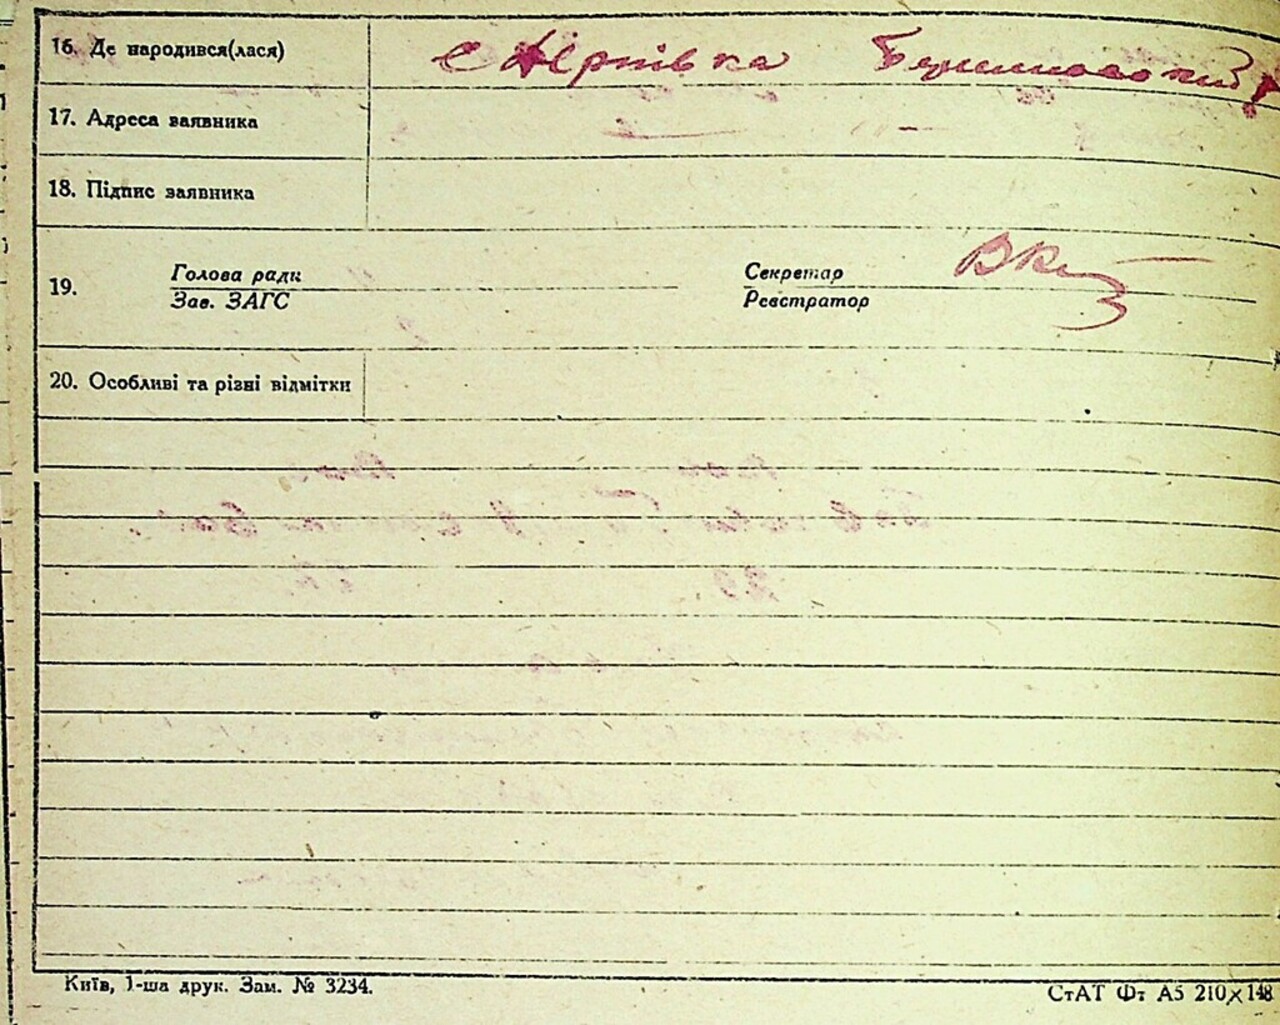 16. Де народився(лася) с
17. Адреса заявника — " —
18. Підпис заявника
Голова ради Секретар
19.
Зав. ЗАГС Реєстратор
20. Особливі та різні відмітки
Київ, 1-ша друк. Зам. № 3234. СтАТ Фт А5 210×148